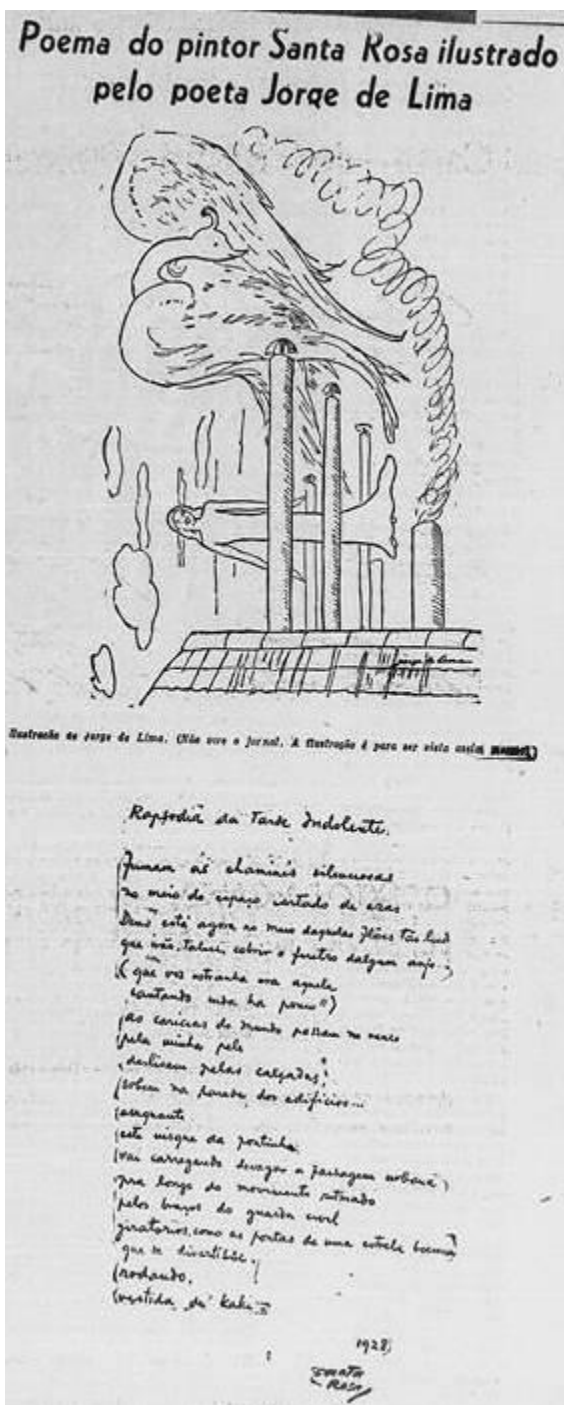 Poema do pintor Santa Rosa ilustrado
pelo poeta Jorge de Lima
jorge de Lima
Ilustração de Jorge de Lima. (Não vire o jornal. A ilustração é para ser vista assim mesmo.)
Rapsodia da Tarde Indolente.
Fumam as chaminés silenciosas
no meio do espaço cortado de azas
Deus está agora no meio daquelas flôres tão
que vão, talvez, cobrir o feretro dalgum anjo
(que voz estranha era aquela
cantando inda ha pouco?)
As caricias do mundo passam no
pela minha pele
deslisam pelas calçadas,
sobem na dos edificios...
este negro da
vai carregando devagar a paisagem urbana
pra longe do movimento
pelos braços do guarda civil
giratorios, como as portas de uma estrela
que se divertisse
rodando,
vestida de kaki
1928
SANTA
ROSA